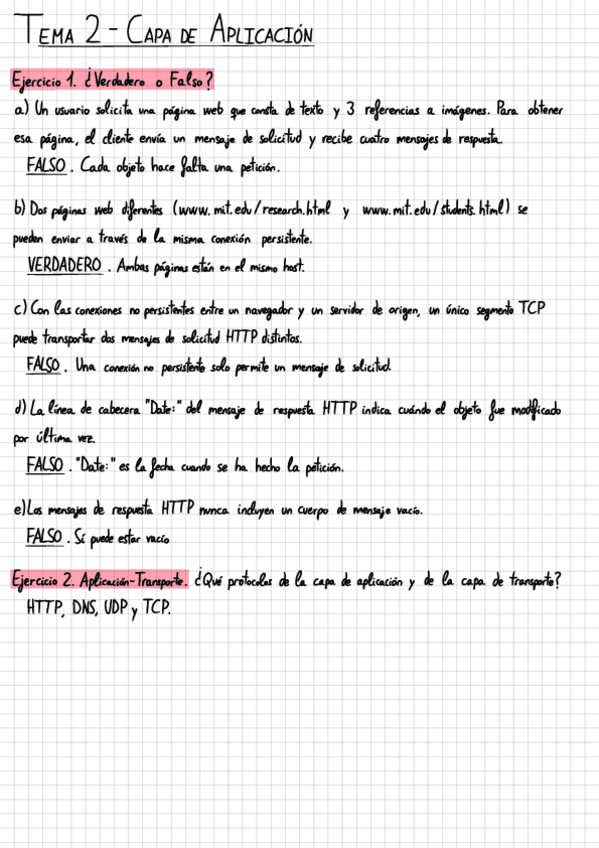 TEMA 2 - CAPA DE APLICACIÓN
Ejercicio 1. ¿Verdadero o Falso?
a) Un usuario solicita una página web que consta de texto y 3 referencias a imágenes. Para obtener
esa página, el cliente envía un mensaje de solicitud y recibe cuatro mensajes de respuesta.
FALSO. Cada objeto hace falta una petición.
b) Dos páginas web diferentes (www.mit.edu/research.html y www.mit.edu/students.html) se
pueden enviar a través de la misma conexión persistente.
VERDADERO. Ambas páginas están en el mismo host.
c) Con las conexiones no persistentes entre un navegador y un servidor de origen, un único segmento TCP
puede transportar dos mensajes de solicitud HTTP distintos.
FALSO. Una conexión no persistente solo permite un mensaje de solicitud.
d) La línea de cabecera "Date:" del mensaje de respuesta HTTP indica cuándo el objeto fue modificado
por última vez.
FALSO. "Date:" es la fecha cuando se ha hecho la petición.
e) Los mensajes de respuesta HTTP nunca incluyen un cuerpo de mensaje vacío.
FALSO. Sí puede estar vacío
Ejercicio 2. Aplicación-Transporte. ¿Qué protocolos de la capa de aplicación y de la capa de transporte?
HTTP, DNS, UDP y TCP.